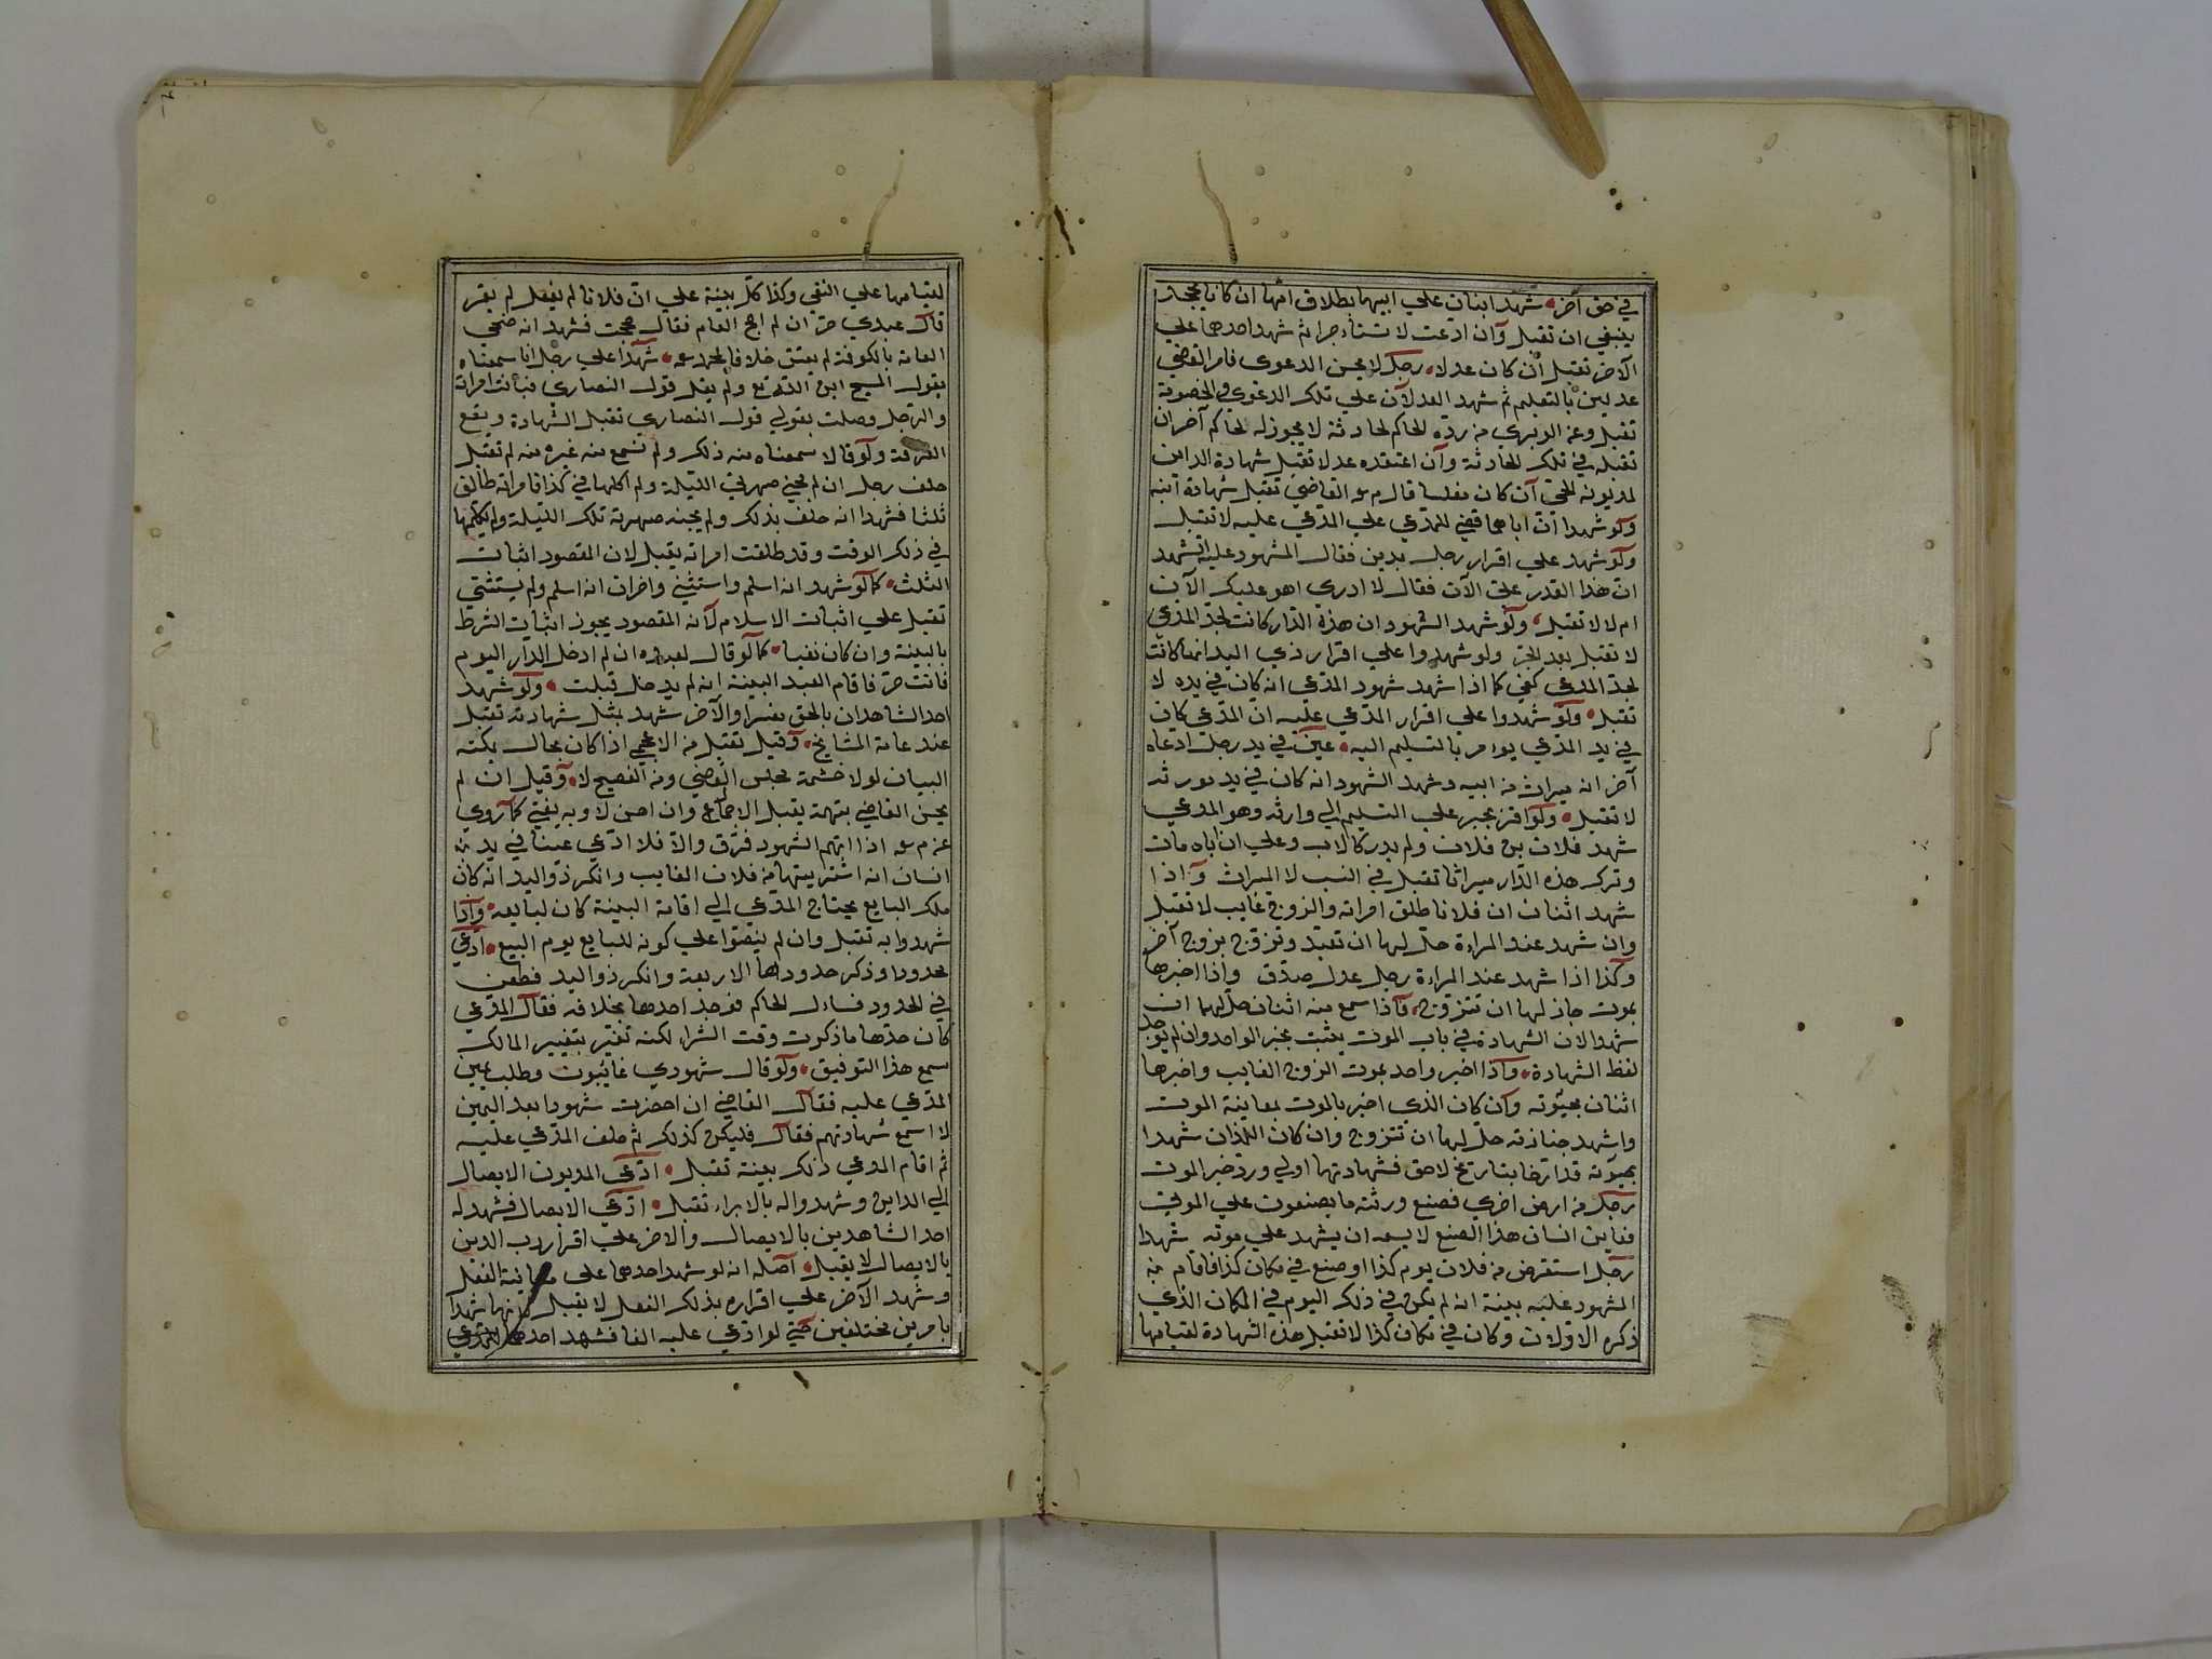 في حق آخر شهد ابنان علي ابيهما بطلاق امّها ان كانا بجحد
ينبغي ان تقبل وآن ادعت لا شهد احدهما علي
الآخر تقبل ان كان عدلا رجل لا يحسن الدعوى فامر القاضي
عدلين بالتعليم ثم شهد العدلان علي تلك الدعوى والخصومة
تقبل وعن الوبري من ردّه الحاكم لحادثة لا يجوز له لحاكم آخر ان
تقبله في تلك الحادثة وآن اعتقده عدلا تقبل شهادة الداين
لمديونه آن كان مفلسا قال القاضي تقبل شهادة ابنه
ولو شهدا انّ اباهما قضي للمدّعي علي المدّعي عليه لا تقبل
ولو شهد علي اقرار رجل بدين فقال المشهود عليه اتشهد
انّ هذا القدر علىّ الآن فقال لا ادري اهو عليك الآن
ام لا لا تقبل ولو شهد الشهود ان هذه الدّار كانت لجدّ المدّعي
لا تقبل بعد الجرّ ولو شهدوا علي اقرار ذي اليد انها كانت
لجدّ المدعي كفي كما اذا شهد شهود المدّعي انه كان في يده لا
تقبل ولو شهدوا علي اقرار المدّعي عليه انّ المدّعي كان
في يد المدّعي يؤمر بالتسليم اليه عين في يد رجل ادعاه
آخر انه ميراث من ابيه وشهد الشهود انه كان في يد مورثه
لا تقبل ولو اقرّ يجبر علي التسليم الي وارثه وهو المدعي
شهد فلان بن فلان ولم يدركا لاب وعلي ان اباه مات
وترك هذه الدّار ميراثا تقبل في النسب لا الميراث وآذا
شهد اثنان ان فلانا طلق امراته والزوج غايب لا تقبل
وان شهد عند المراءة حلّ لها ان تعتد وتزوّج بزوج آخر
وكذا اذا شهد عند المراءة رجل عدل صدّق واذا اخبرها
بموت جاز لها ان تتزوّج فآذا سمع منه اثنان حلّ لهما ان
شهدا لان الشهادة في باب الموت يثبت بخبر الواحد وان لم يوجد
لفظ الشهادة وآذا اخبر واحد بموت الزوج الغايب واخبرها
اثنان بحيوته وان كان الذي اخبر بالموت بمعاينة الموت
واشهد جنازته حلّ لها ان تتزوج وان كان اللذان شهدا
بحيوته قد ارّخا بتاريخ لاحق فشهادتهما اولي وردّ خبر الموت
رجل من ارض اخري فصنع ورثته ما يصنعون علي الموتى
فعاين انسان هذا الصنع لا يسعه ان يشهد علي موته شهدا
رجل استقرض من فلان يوم كذا او صنع في مكان كذا فاقام
المشهود عليه بينة انه لم يكن في ذلك اليوم في المكان الذي
ذكره الاوّلان وكان في مكان كذا لا تقبل هذه الشهادة لقيامها
لقيامها علي النفي وكذا كلّ بينة علي انّ فلانا لم يفعل لم يقر
قال عبدي حرّ ان لم احج العام فقال حججت فشهد انه ضحّي
العام بالكوفة لم يعتق خلافا لمحمد شهدا علي رجل انا سمعناه
يقول المسيح ابن اللّه ولم يقل قول النصاري فبانت امراته
والرّجل وصلت بقولي قول النصاري تقبل الشهادة ويقع
الفرقة ولو قالا سمعناه منه ذلك ولم نسمع منه غيره لم تقبل
حلف رجل ان لم يجئ صهرتي الليلة ولم اكلمها في كذا فامراته طالق
ثلثا فشهدا انه حلف بذلك ولم يجئه صهرته تلك الليلة ولم يكلّمها
في ذلك الوقت وقد طلقت امراته يقبل لان المقصود اثبات
الثلث كما لو شهد انه اسلم واستثني واخران انه اسلم ولم يستثني
تقبل علي اثبات الاسلام لانه المقصود يجوز اثبات الشرط
بالبينة وان كان نفيا كما لو قال لعبده ان لم ادخل الدّار اليوم
فانت حرّ فاقام العبد البينة انه لم يدخل قبلت ولو شهد
احد الشاهدان بالحق مفسرا والآخر شهد بمثل شهادته تقبل
عند عامة المشايخ وقيل تقبل من الاعجمي اذا كان بحال يمكنه
البيان لولا حشمة مجلس القاضي ومن الفصيح لا وقيل ان لم
يحسن القاضي بتهمة يقبل الاجماع وان احسن لا وبه يفتي كما روي
عن م اذا اتهم الشهود فرّق والا فلا ادّعي عينا في يد
انسان انه اشتريتها من فلان الغايب وانكر ذو اليد انه كان
ملك البايع يحتاج المدّعي الي اقامة البينة كان لبايعه وآذا
شهدوا به تقبل وان لم ينصّوا علي كونه للبايع يوم البيع ادّعي
محدودا وذكر حدودها الاربعة وانكر ذو اليد فطعن
في الحدود فسال الحاكم فوجد احدها بخلافه فقال المدّعي
كان حدّها ما ذكرت وقت الشراء لكنه تغيّر بتغيير المالك
سمع هذا التوفيق ولو قال شهودي غائبون وطلب يمين
المدّعي عليه فقال القاضي ان احضرت شهودا بعد اليمين
لا اسمع شهادتهم فقال فليكن كذلك ثم حلف المدّعي عليه
ثم اقام المدعي ذلك بينة تقبل ادّعى المديون الايصال
الي الداين وشهدوا له بالابراء تقبل ادّعى الايصال فشهد له
احد الشاهدين بالايصال والآخر علي اقرار رب الدين
بالايصال لا يقبل آصله انه لو شهد احدهما على معاينة الفعل
وشهد الآخر علي اقراره بذلك الفعل لا يقبل لانهما شهدا
بامرين مختلفين حتي لو ادّعي عليه الفا فشهد احدهما